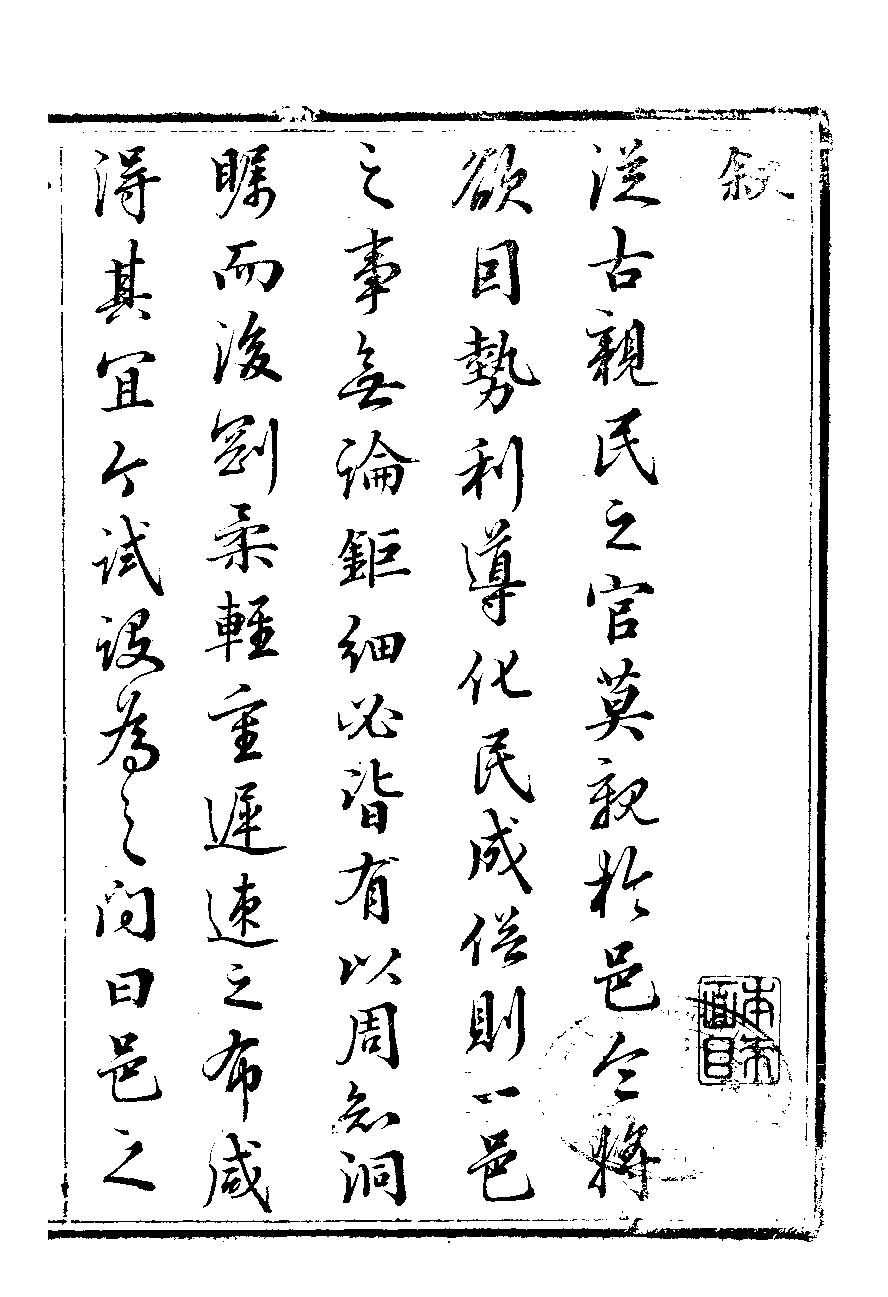 叙
從古親民之官莫親於邑令將
欲因勢利導化民成俗則一邑
之事無論鉅細必皆有以周知洞
矚而後剛柔輕重遲速之布咸
得其宜今試設為之問曰邑之
本來面目